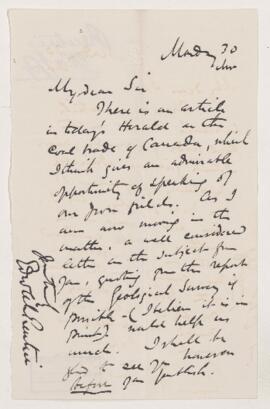 Monday 30
Nov
My dear Sir
There is an article
in today's Herald on the
Coal trade of Canada, which
I think gives an admirable
opportunity of speaking of
our own fields. As I
am now moving in the
matter, a well considered
letter on the subject from
you, quoting from the report
of the Geological Survey if
possible - (I believe it is in
print) would help us
much. I shall be
glad to see you however
before you publish.
Yours truly